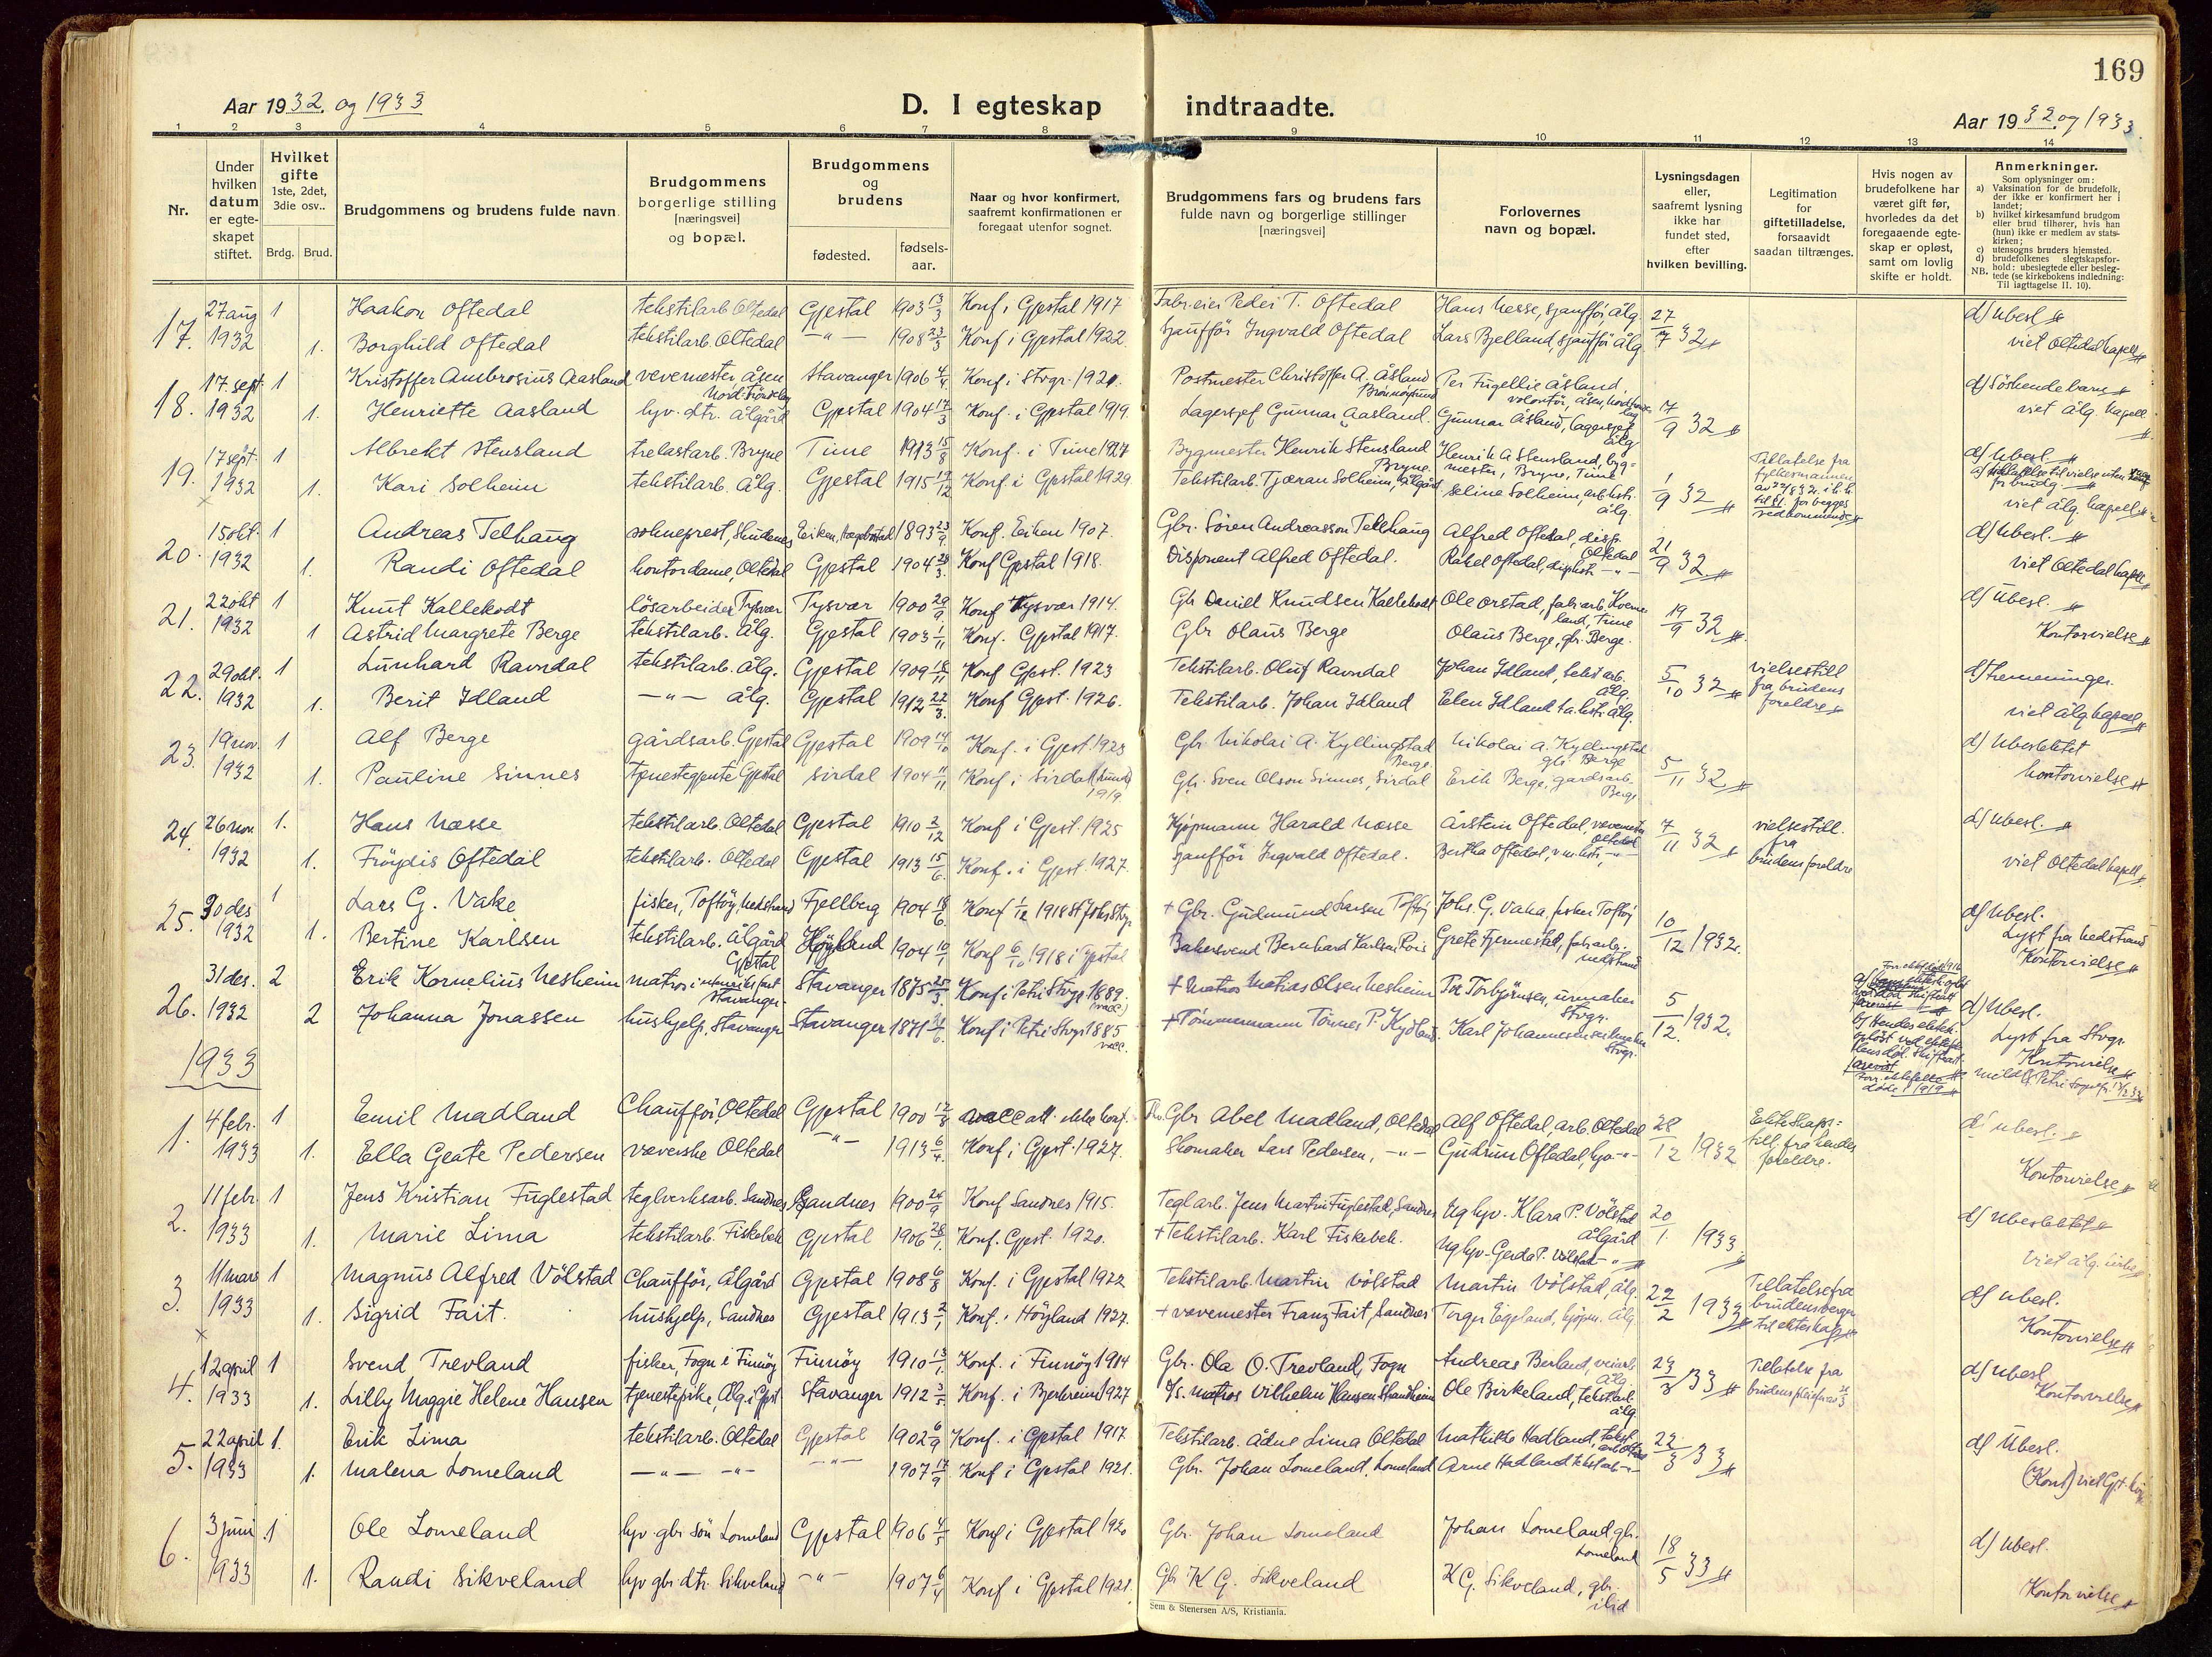 169
Aar 1932. og 1933
D. I egteskap indtraadte.
Aar 1932. og 1933
1 2 3 4 5 6 7 8 9 10 11 12 13 14
Nr.
Under hvilken datum er egte-skapet stiftet.
Hvilket gifte 1ste, 2det, 3die osv..
Brdg. Brud.
Brudgommens og brudens fulde navn.
Brudgommens borgerlige stilling [næringsvei] og bopæl.
Brudgommens og brudens
fødested. fødsels-aar.
Naar og hvor konfirmert, saafremt konfirmationen er foregaat utenfor sognet.
Brudgommens fars og brudens fars fulde navn og borgerlige stillinger [næringsvei]
Forlovernes navn og bopæl.
Lysningsdagen eller, saafremt lysning ikke har fundet sted, efter hvilken bevilling.
Legitimation for giftetilladelse, forsaavidt saadan tiltrænges.
Hvis nogen av brudefolkene har været gift før, hvorledes da det foregaaende egte-skap er opløst, samt om lovlig skifte er holdt.
Anmerkninger.
Som oplysninger om:
a) Vaksination for de brudefolk, der ikke er konfirmert her i landet;
b) hvilket kirkesamfund brudgom eller brud tilhører, hvis han (hun) ikke er medlem av stats-kirken;
c) utensogns bruders hjemsted.
d) brudefolkenes slegtskapsfor-hold: ubeslegtede eller besleg-tede (se kirkebokens indledning:
NB. Til iagttagelse II. 10).
17. 27 aug 1932 1 Haakon Oftedal tekstilarb Oltedal Gjestal 1903 13/3 Konf. i Gjestal 1917 Fabr.eier Peder T. Oftedal Hans Nesse, sjauffør, Ålg. 27/7 32 d) Ubesl
1. Borghild Oftedal tekstilarb. Oltedal —"— 1908 23/3 Konf. i Gjestal 1922. Sjauffør Ingvald Oftedal Lars Bjelland, sjauffør Ålg. viet Oltedal kapell
18. 17 sept. 1932 1 Kristoffer Ambrosius Aasland vevemester, Åsen Nord-Trøndelag Stavanger 1906 4/4 Konf. i Stvgr. 1920. Postmester Christoffer A. Åsland Brønnøysund Per Fugellie Åsland, volontør, Åsen 17/9 32 d) Søskendebarn
1. Henriette Aasland hjv. dtr. Ålgård Gjestal 1904 17/3 Konf. i Gjestal 1919. Lagersjef Gunnar Aasland. Gunnar Åsland, lagersjef Ålg viet Ålg. kapell
19. 17 sept. 1932 1 Albrekt Stensland trelastarb. Bryne Time 1913 15/8 Konf. i Time 1927 Bygmester Henrik Stensland Bryne. Henrik A Stensland, byg-mester, Bryne, Time 1/9 32 Tillatelse fra fylkesmannen d) Ubesl
1. Kari Solheim tekstilarb. Ålg. Gjestal 1915 19/12 Konf. i Gjestal 1929. Tekstilarb. Tjæran Solheim, Ålgård Seline Solheim, arb.hstr. Ålg. viet Ålg. kapell
20. 15 okt. 1932 1 Andreas Telhaug sokneprest, Skudenes Eiken, Hægebostad 1893 23/9 Konf. Eiken 1907. Gbr. Søren Andreasson Tellhaug Alfred Oftedal, disp. Oltedal 21/9 32 d) Ubesl.
1. Randi Oftedal kontordame, Oltedal Gjestal 1904 28/3 Konf Gjestal 1918. Disponent Alfred Oftedal. Rakel Oftedal, disp.hstr. —"— viet Oltedal kapell
21. 22 okt 1932 1 Knut Kallekodt løsarbeider Tysvær Tysvær 1900 29/9 Konf Tysvær 1914. Gbr Daniel Knudsen Kallekodt Ole Orstad, fabr.arb. Kverne land, Time 19/9 32 d) Ubesl.
1 Astrid Margrete Berge tekstilarb. Ålg. Gjestal 1903 1/11 Konf. Gjestal 1917. Gbr Olaus Berge Olaus Berge, gbr. Berge. Kontorvielse
22. 29 okt. 1932 1 Lünhard Ravndal tekstilarb. Ålg. Gjestal 1909 18/11 Konf Gjest. 1923 Tekstilarb. Oluf Ravndal Johan Idland, tekst arb. Ålg. 5/10 32 vielsestill fra brudens foreldre d) Tremeninger.
1. Berit Idland —"— Ålg. Gjestal 1912 22/3. Konf Gjest. 1926. Tekstilarb. Johan Idland Elen Idland ta.hstr. Ålg. viet Ålg kapell
23. 19 nov. 1932 1 Alf Berge gårdsarb. Gjestal Gjestal 1909 14/10 Konf. i Gjest. 1923 Gbr Nikolai A. Kyllingstad Berge. Nikolai A. Kyllingstad gbr Berge 5/11 32 d) Ubeslektet
1. Pauline Sinnes tjenestegjente Gjestal Sirdal 1904 11/11 Konf. i Sirdal 1919. Gbr. Sven Olson Sinnes, Sirdal Erik Berge, gardsarb. Berge kontorvielse
24. 26 nov. 1932 1. Hans Næsse tekstilarb. Oltedal Gjestal 1910 2/12 Konf i Gjest. 1925 Kjøpmann Harald Næsse Årstein Oftedal, vevemester Oltedal 7/11 32 vielsestill. fra brudens foreldre d) Ubesl.
1. Frøydis Oftedal tekstilarb. Oltedal Gjestal 1913 15/6. Konf. i Gjest. 1927. Sjauffør Ingvald Oftedal. Bertha Oftedal, v.m.hstr. —"— viet Oltedal kapell
25. 30 des 1932 1 Lars G. Vake fisker, Toftøy, Nedstrand Fjellberg 1904 18/6. Konf 1/12 1918 St Johs Stvgr + Gbr. Gudmund Larsen Toftøy Johs. G. Vaka, fisker Toftøy 10/12 1932. d) Ubesl. Lyst fra Nedstrand
1. Bertine Karlsen tekstilarb. Ålgård Gjestal Høyland 1904 10/1 Konf 6/10 1918 i Gjestal Bakersvend Bernhard Karlsen Grete Fjermestad, fabr.arb. Nedstrand Kontorvielse
26. 31 des. 1932 2 Erik Kornelius Nesheim matros i utenriks fart Stavanger. Stavanger 1875 25/3 Konf i Petri Stvgr 1889. (vacc.) + Matros Mathias Olsen Nesheim Tor Torbjørnsen, urmaker Stvgr. 5/12. 1932. d) Ubesl.
2 Johanna Jonassen hushjelp, Stavanger Stavanger 1871 Konf i Petri Stvgr 1885 vacc. + Tømmermann Tønnes P. Kydland. Karl Johannesen Stvgr. Lyst fra Stvgr. Kontorvielse
1933
1. 4 febr. 1933 1 Emil Madland Chauffør, Oltedal Gjestal 1900 12/8 vacc att. ikke konf. Gbr Abel Madland, Oltedal Alf Oftedal, arb. Oltedal 28/12 1932 Ekteskaps-till. fra hendes foreldre. d) ubesl.
1. Ella Geate Pedersen veverske Oltedal —"— 1913 6/4. Konf. i Gjest. 1927. Skomaker Lars Pedersen, —"— Gudrun Oftedal, hjv. —"— Kontorvielse
2. 11 febr. 1933 1 Jens Kristian Fuglestad teglverksarb. Sandnes Sandnes 1900 24/9 Konf Sandnes 1915. Teglarb. Jens Martin Fuglestad, Sandnes Ug hjv. Klara P. Vølstad Ålgård 20/1. 1933 d) Ubeslektet
1. Marie Lima tekstilarb. Fiskebek Gjestal 1906 28/1. Konf. Gjest. 1920. + Tekstilarb. Karl Fiskebek. Ug hjv. Gerda P. Vølstad —"— viet Ålg. kirke
3. 11 mars 1933 1 Magnus Alfred Vølstad Chauffør, Ålgård Gjestal 1908 6/8 Konf. i Gjestal 1922 Tekstilarb. Martin Vølstad Martin Vølstad, Ålg. 22/2 1933 Tillatelse fra brudens verger til ekteskap d) ubesl.
1. Sigrid Fait. hushjelp, Sandnes Gjestal 1913 2/1 Konf. i Høyland 1927. + vevemester Franz Fait, Sandnes Torger Eigeland, kjøpm. Ålg Kontorvielse
4. 12 april 1933 1 Svend Trevland fisker, Fogn i Finnøy Finnøy 1910 13/1. Konf. i Finnøy 1914 Gbr. Ola O. Trevland, Fogn Andreas Berland, veiarb. Ålg. 29/3 33 Tillatelse fra d) ubesl
1. Lilly Maggie Helene Hansen tjenestepike, Ålg. i Gjest Stavanger 1912 Konf. i Bjerkreim 1927 matros Vilhelm Hansen Ole Birkeland, tekstarb. Ålg. Kontorvielse
5. 22 april 1933 1. Erik Lima tekstilarb. Oltedal Gjestal 1902 6/9 Konf. i Gjestal 1917. Tekstilarb. Ådne Lima Oltedal Mathilde Hadland, tekst. 22/3 33 d) Ubesl.
1. Malena Lomeland —"— —"— —"— 1907 17/9 Konf i Gjestal 1921. Gbr. Johan Lomeland, Lomeland Arne Hadland tekstarb —"— (Kont) viet
6. 3 juni 1933 1 Ole Lomeland hjv. gbr. søn Lomeland Gjestal 1906 4/5 Konf i Gjestal 1920 Gbr. Johan Lomeland Johan Lomeland gbr. Lomeland 18/5 33 d) Ubesl.
1. Randi Sikveland hjv gbr dtr. Sikveland —"— 1907 6/4 Konf i Gjestal 1921. Gbr K G. Sikveland K G. Sikveland, gbr. ibid Kontorvielse
Sem & Stenersen A/S, Kristiania.